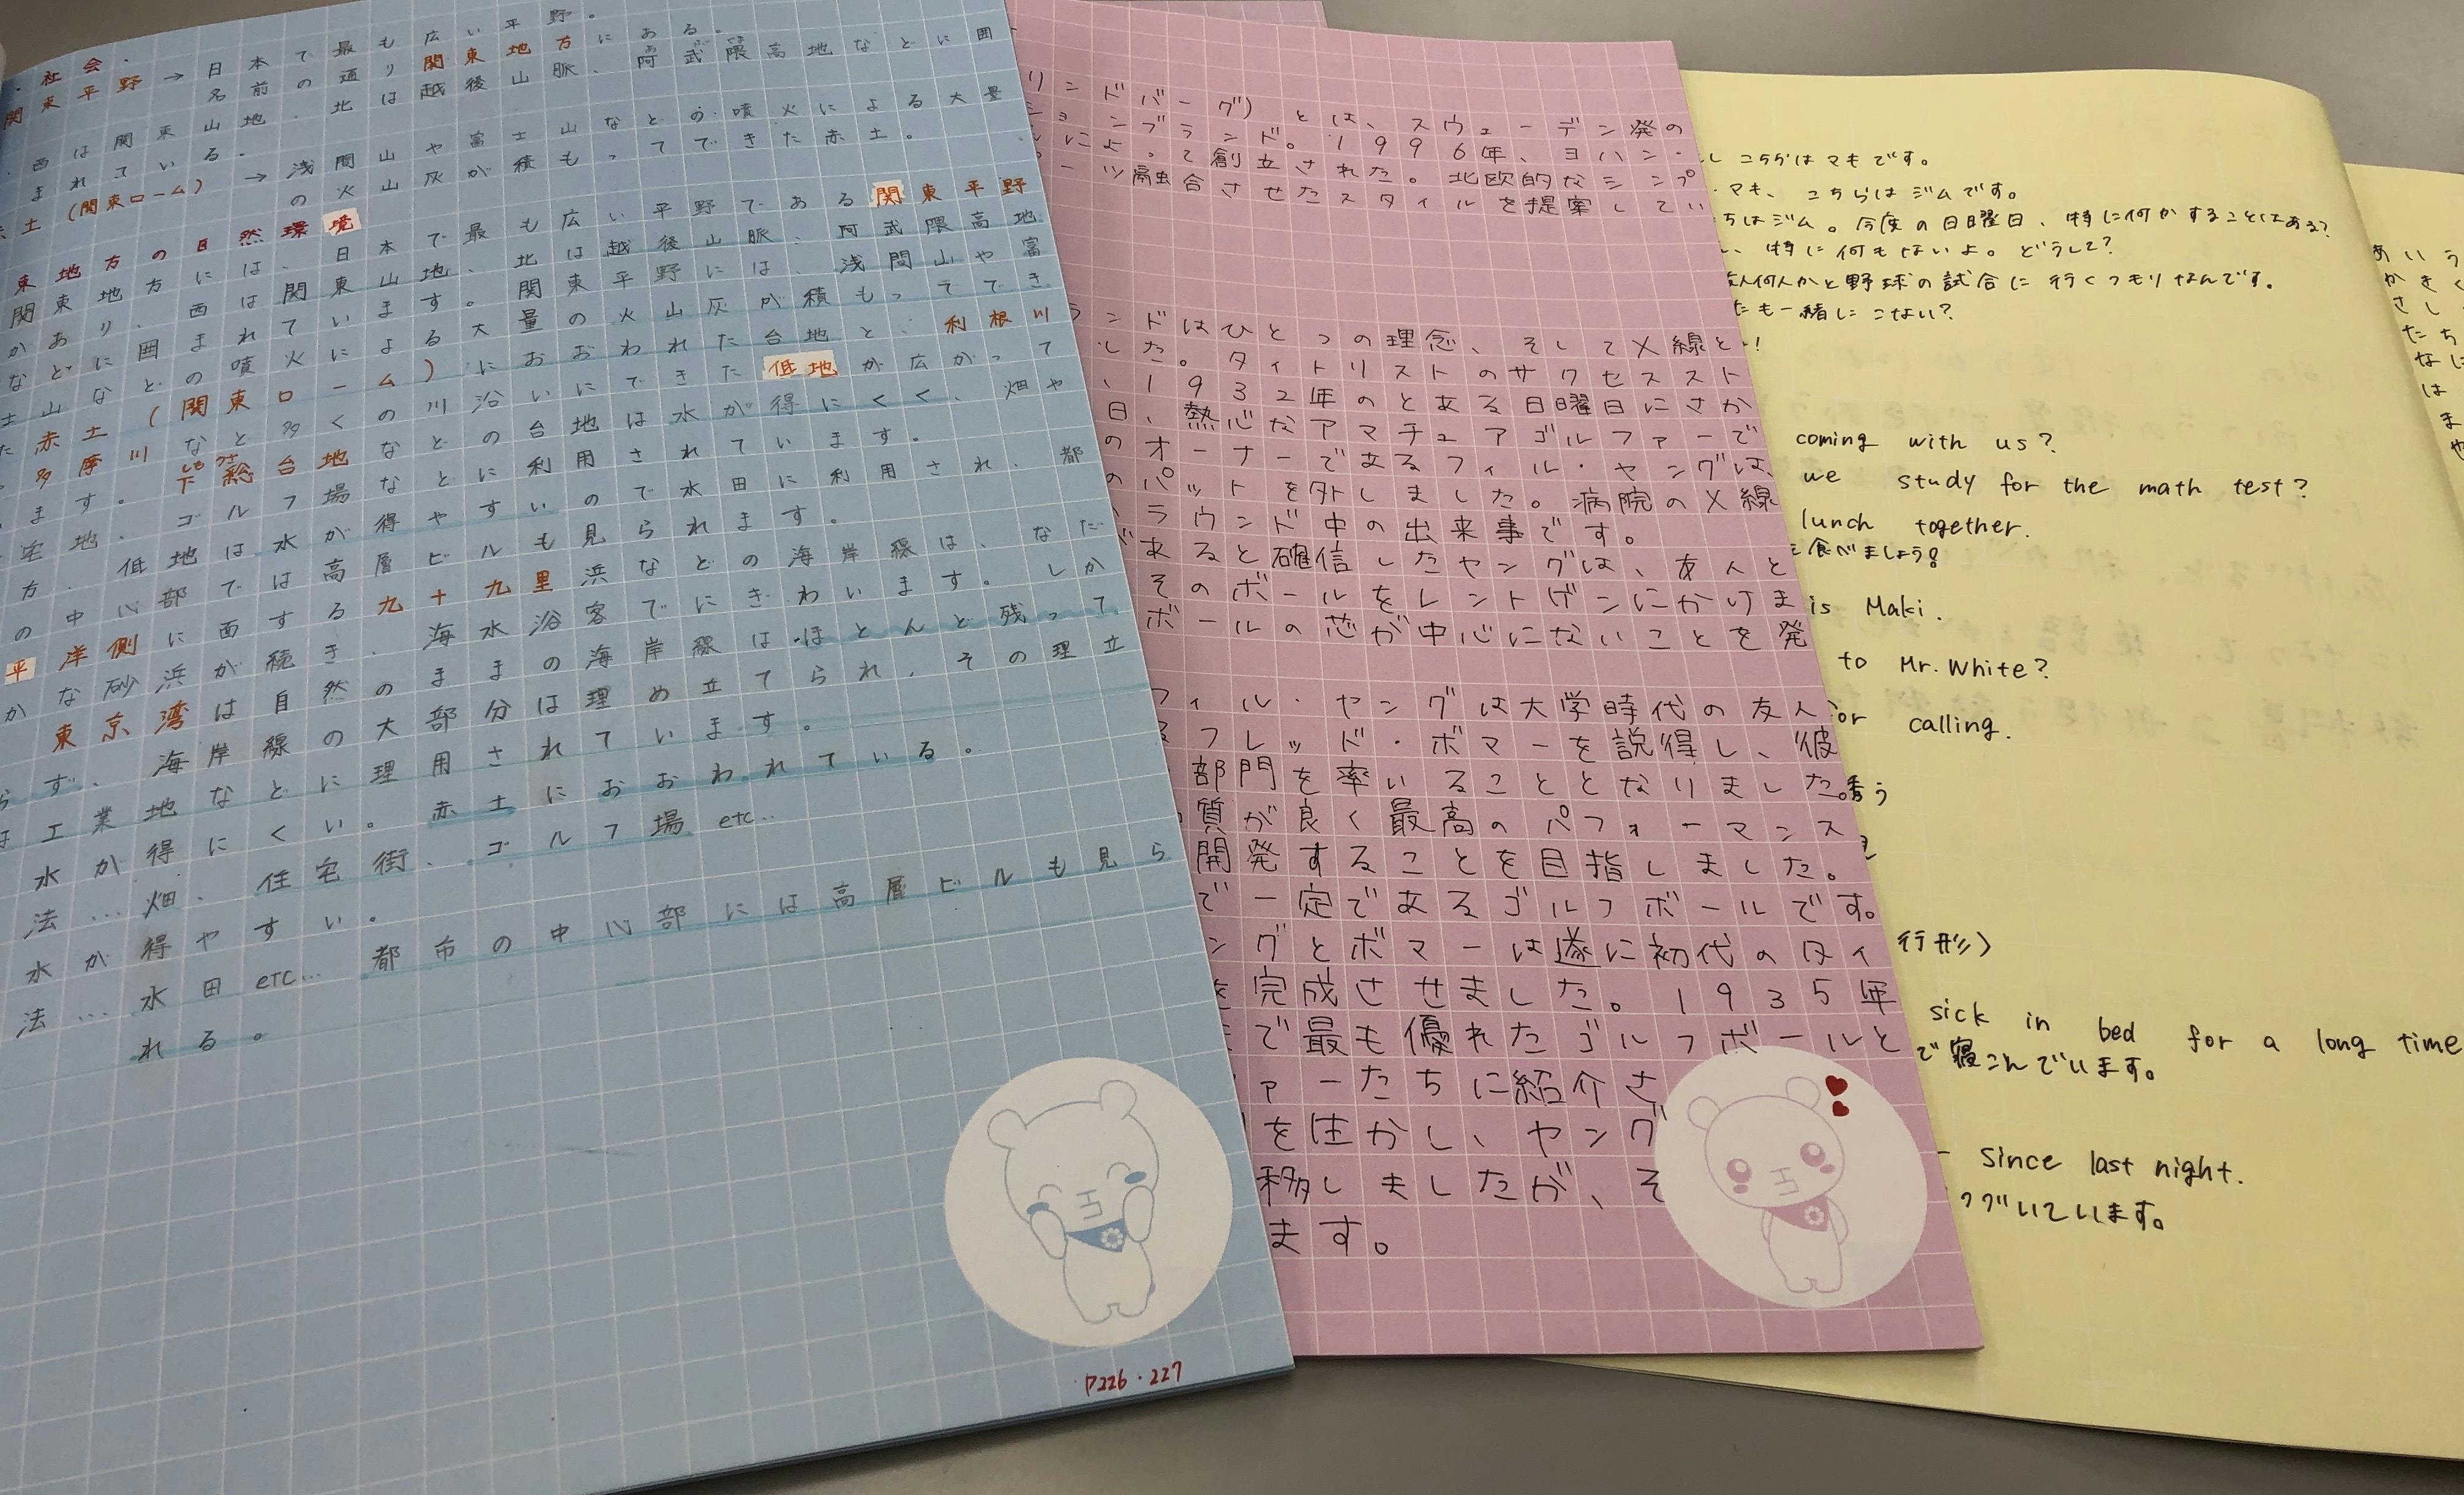 社会.
関東平野→日本で最も広い平野。
名前の通り関東地方にある。
西は関東山地、北は越後山脈、阿武隈高地などに囲
まれている。
土(関東ローム)→浅間山や富士山などの噴火による大量
の火山灰が積もってできた赤土。
東地方の自然環境
関東地方には、日本で最も広い平野である関東平野
があり、西は関東山地、北は越後山脈、阿武隈高地
などに囲まれています。関東平野には、浅間山や富
士山などの噴火による大量の火山灰が積もってでき
た赤土(関東ローム)におおわれた台地と、利根川
多摩川など多くの川沿いにできた低地が広がって
ます。下総台地などの台地は水が得にくく、畑や
宅地、ゴルフ場などに利用されています。
方、低地は水が得やすいので水田に利用され、都
の中心部では高層ビルも見られます。
平洋側に面する九十九里浜などの海岸線は、なだ
かな砂浜が続き、海水浴客でにぎわいます。しか
東京湾は自然のままの海岸線はほとんど残って
らず、海岸線の大部分は理め立てられ、その理立
は工業地などに理用されています。
水が得にくい。赤土におおわれている。
法…畑、住宅街、ゴルフ場etc…
水が得やすい。
法…水田etc…都市の中心部には高層ビルも見ら
れる。
P226・227
リンドバーグ)とは、スウェーデン発の
ションブランド。1996年、ヨハン・
によって創立された。北欧的なシンプ
ーツ融合させたスタイルを提案してい
ランドはひとつの理念、そしてX線と
した。タイトリストのサクセススト
、1932年のとある日曜日にさか
日、熱心なアマチュアゴルファーで
のオーナーであるフィル・ヤングは、
のパットを外しました。病院のX線
ラウンド中の出来事です。
があると確信したヤングは、友人と
そのボールをレントゲンにかけま
ボールの芯が中心にないことを発
フィル・ヤングは大学時代の友人
るフレッド・ボマーを説得し、彼
部門を率いることとなりました。
質が良く最高のパフォーマンス
開発することを目指しました。
で一定であるゴルフボールです。
ングとボマーは遂に初代のタイ
を完成させました。1935年
まで最も優れたゴルフボールと
ァーたちに紹介さ
を生かし、ヤング
移しましたが、そ
ます。
こちらはマキです。
マキ、こちらはジムです。
ちはジム。今度の日曜日、特に何かすることはある?
、特に何もないよ。どうして?
友人何人かと野球の試合に行くつもりなんです。
たも一緒にこない?
coming with us?
we study for the math test?
lunch together.
を食べましょう!
is Maki.
to Mr. White?
for calling.
誘う
行形)
sick in bed for a long time
で寝こんでいます。
since last night.
つづいています。
あいう
かきく
さし
たち
なに
は
ま
や